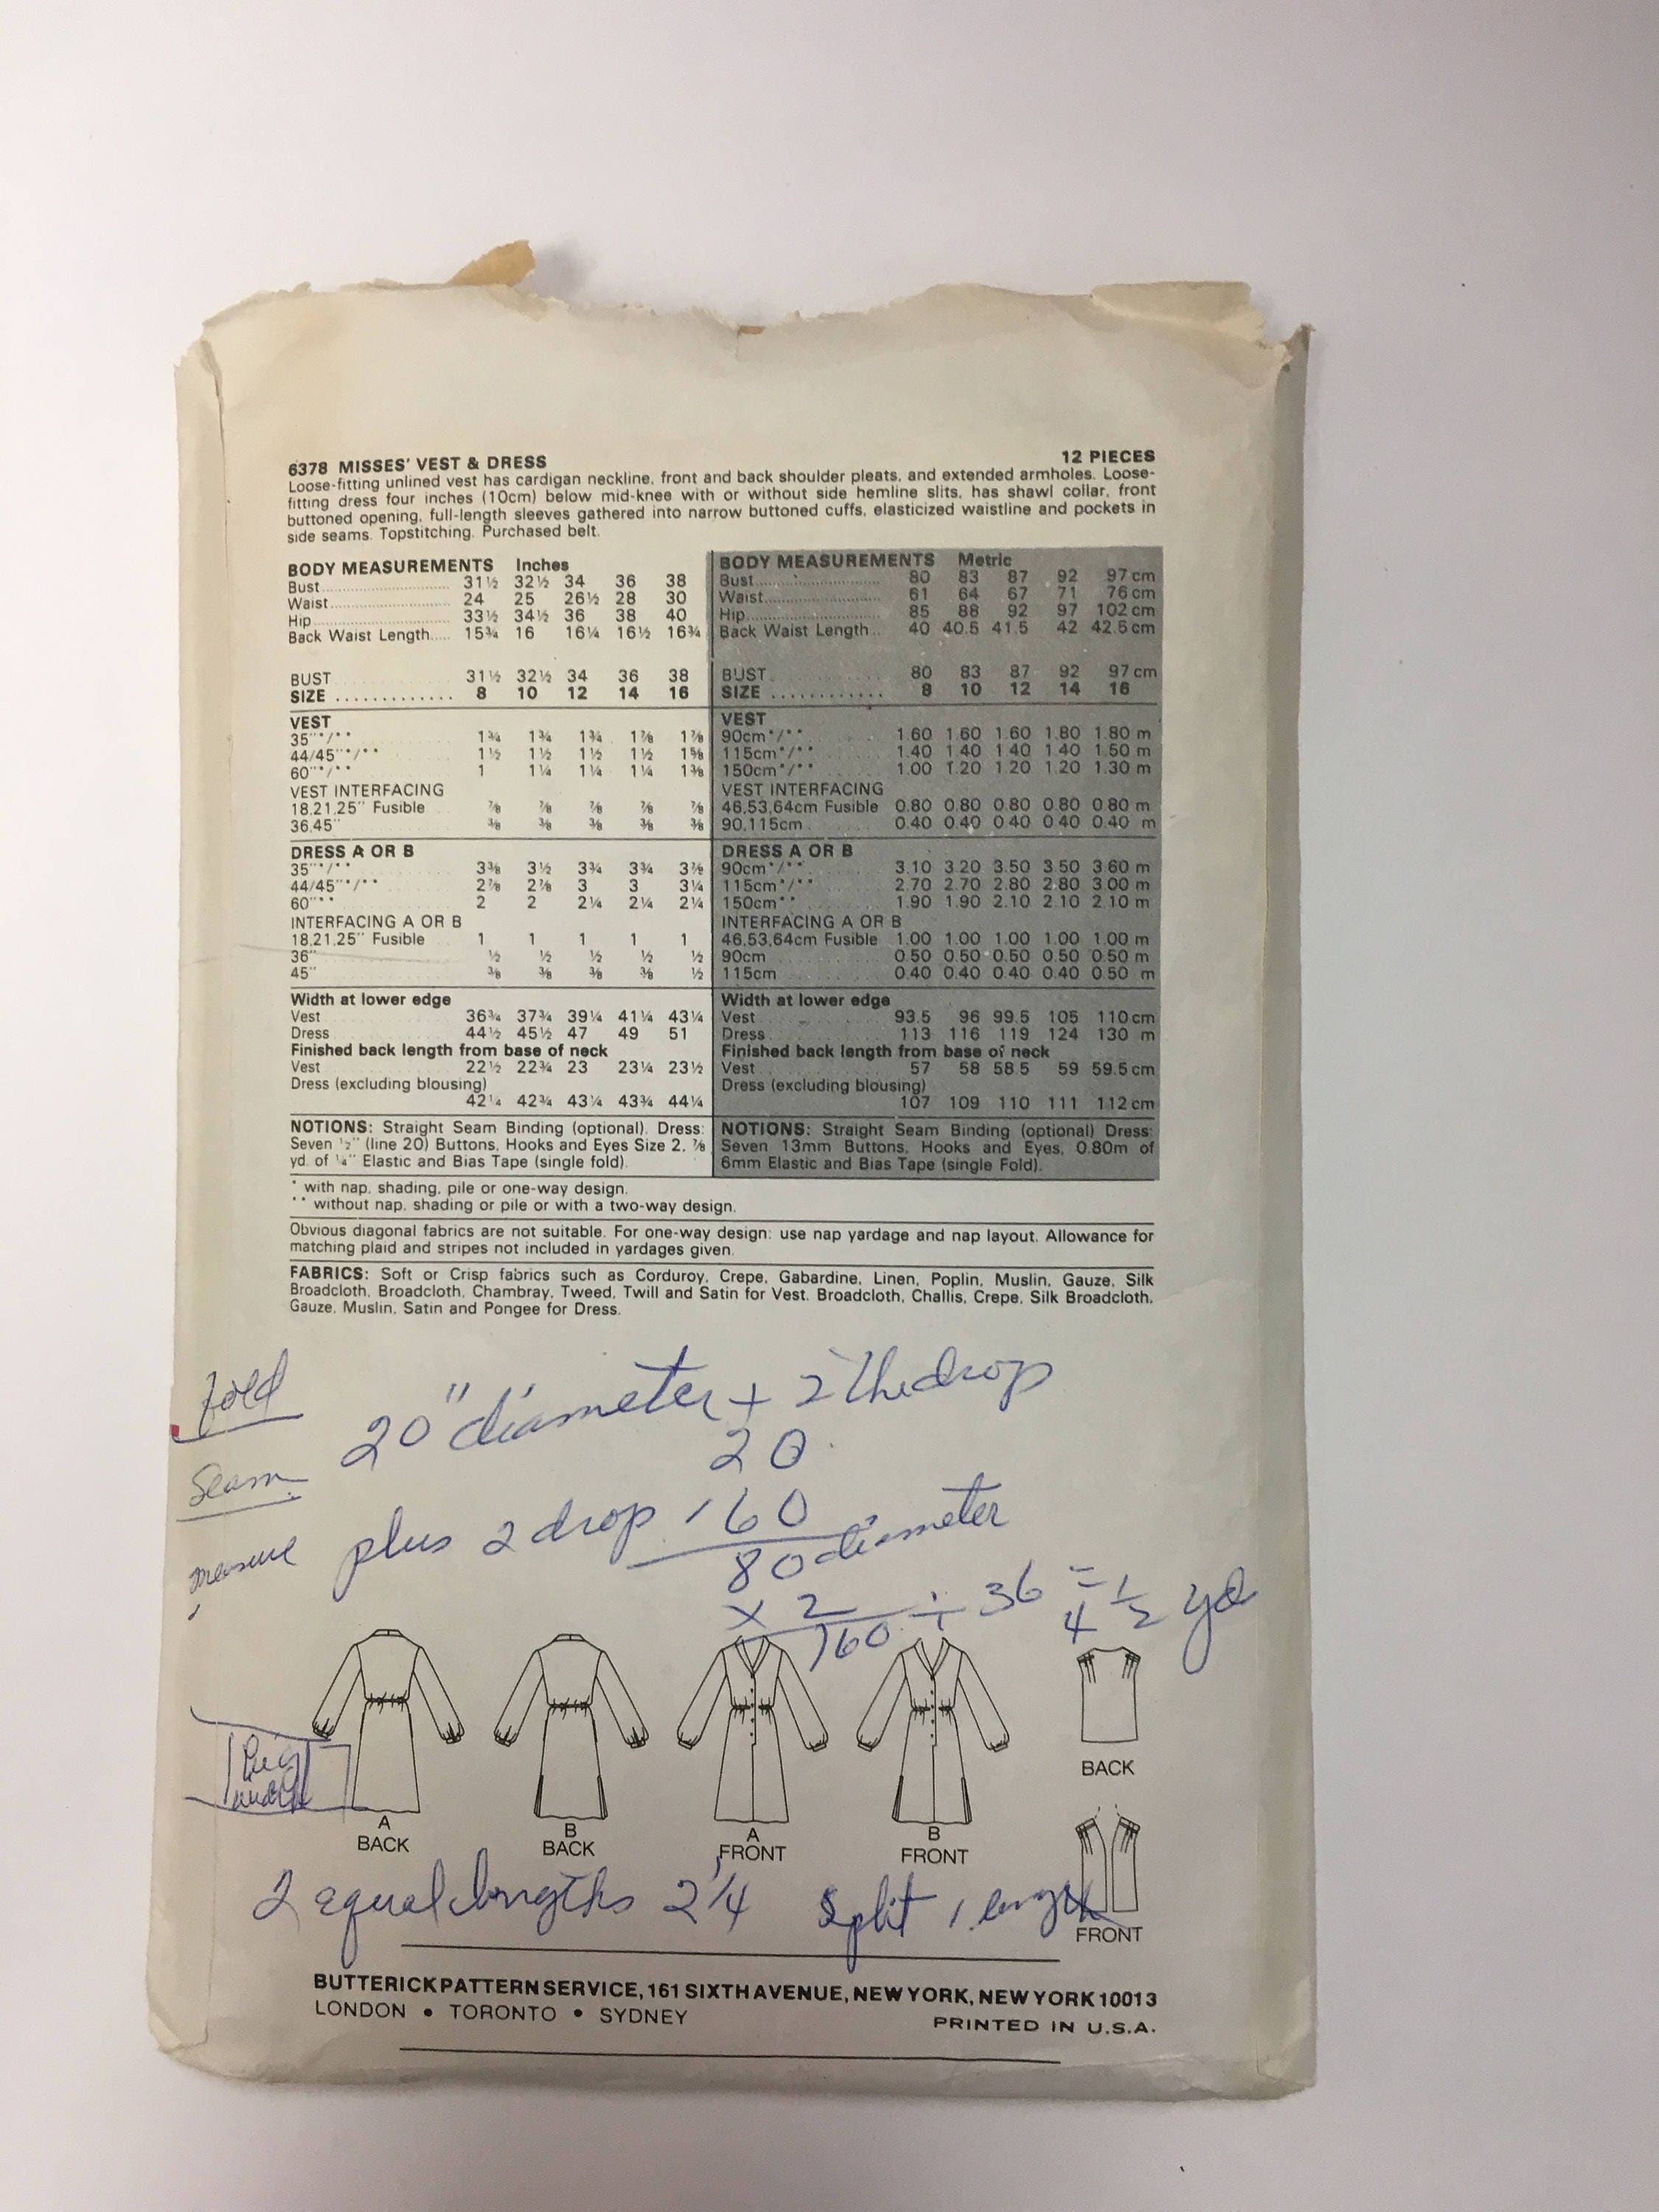 6378 MISSES' VEST & DRESS 12 PIECES
Loose-fitting unlined vest has cardigan neckline, front and back shoulder pleats, and extended armholes. Loose-
fitting dress four inches (10cm) below mid-knee with or without side hemline slits, has shawl collar, front
buttoned opening, full-length sleeves gathered into narrow buttoned cuffs, elasticized waistline and pockets in
side seams. Topstitching. Purchased belt.
BODY MEASUREMENTS Inches
Bust 31½ 32½ 34 36 38
Waist 24 25 26½ 28 30
Hip 33½ 34½ 36 38 40
Back Waist Length 15¾ 16 16¼ 16½ 16¾
BUST 31½ 32½ 34 36 38
SIZE 8 10 12 14 16
VEST
35"*/** 1¾ 1¾ 1¾ 1⅞ 1⅞
44/45"*/** 1½ 1½ 1½ 1½ 1⅝
60"*/** 1 1¼ 1¼ 1¼ 1⅜
VEST INTERFACING
18,21,25" Fusible ⅞ ⅞ ⅞ ⅞ ⅞
36,45" ⅜ ⅜ ⅜ ⅜ ⅜
DRESS A OR B
35"*/** 3⅜ 3½ 3¾ 3¾ 3⅞
44/45"*/** 2⅞ 2⅞ 3 3 3¼
60"** 2 2 2¼ 2¼ 2¼
INTERFACING A OR B
18,21,25" Fusible 1 1 1 1 1
36" ½ ½ ½ ½ ½
45" ⅜ ⅜ ⅜ ⅜ ½
Width at lower edge
Vest 36¾ 37¾ 39¼ 41¼ 43¼
Dress 44½ 45½ 47 49 51
Finished back length from base of neck
Vest 22½ 22¾ 23 23¼ 23½
Dress (excluding blousing)
42¼ 42¾ 43¼ 43¾ 44¼
NOTIONS: Straight Seam Binding (optional). Dress:
Seven ½" (line 20) Buttons, Hooks and Eyes Size 2, ⅞
yd. of ¼" Elastic and Bias Tape (single fold).
BODY MEASUREMENTS Metric
Bust 80 83 87 92 97 cm
Waist 61 64 67 71 76 cm
Hip 85 88 92 97 102 cm
Back Waist Length 40 40.5 41.5 42 42.5 cm
BUST 80 83 87 92 97 cm
SIZE 8 10 12 14 16
VEST
90cm*/** 1.60 1.60 1.60 1.80 1.80 m
115cm*/** 1.40 1.40 1.40 1.40 1.50 m
150cm*/** 1.00 1.20 1.20 1.20 1.30 m
VEST INTERFACING
46,53,64cm Fusible 0.80 0.80 0.80 0.80 0.80 m
90,115cm 0.40 0.40 0.40 0.40 0.40 m
DRESS A OR B
90cm*/** 3.10 3.20 3.50 3.50 3.60 m
115cm*/** 2.70 2.70 2.80 2.80 3.00 m
150cm** 1.90 1.90 2.10 2.10 2.10 m
INTERFACING A OR B
46,53,64cm Fusible 1.00 1.00 1.00 1.00 1.00 m
90cm 0.50 0.50 0.50 0.50 0.50 m
115cm 0.40 0.40 0.40 0.40 0.50 m
Width at lower edge
Vest 93.5 96 99.5 105 110 cm
Dress 113 116 119 124 130 m
Finished back length from base of neck
Vest 57 58 58.5 59 59.5 cm
Dress (excluding blousing)
107 109 110 111 112 cm
NOTIONS: Straight Seam Binding (optional) Dress:
Seven 13mm Buttons, Hooks and Eyes, 0.80m of
6mm Elastic and Bias Tape (single Fold).
* with nap, shading, pile or one-way design.
** without nap, shading or pile or with a two-way design.
Obvious diagonal fabrics are not suitable. For one-way design: use nap yardage and nap layout. Allowance for
matching plaid and stripes not included in yardages given.
FABRICS: Soft or Crisp fabrics such as Corduroy, Crepe, Gabardine, Linen, Poplin, Muslin, Gauze, Silk
Broadcloth, Broadcloth, Chambray, Tweed, Twill and Satin for Vest. Broadcloth, Challis, Crepe, Silk Broadcloth,
Gauze, Muslin, Satin and Pongee for Dress.
fold
20" diameter + 2 the drop
20
Seam
measure
plus 2 drop 160
80 diameter
x 2 ÷ 36 = 4 ½ yd
160
A
BACK
B
BACK
A
FRONT
B
FRONT
BACK
FRONT
2 equal lengths 2 ¼ Split 1 length
BUTTERICK PATTERN SERVICE, 161 SIXTH AVENUE, NEW YORK, NEW YORK 10013
LONDON • TORONTO • SYDNEY
PRINTED IN U.S.A.